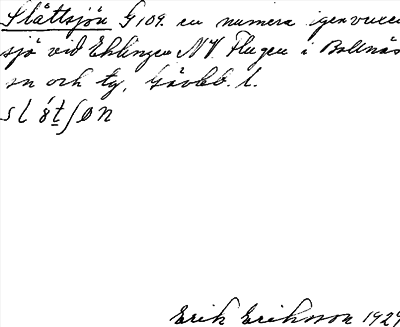 Slåttsjön G, 109. en numera igenvuxen
sjö vid Ehlingen NV. Flugen i Bollnäs
sn och tg, Gävleb. l.
Erik Eriksson 1929